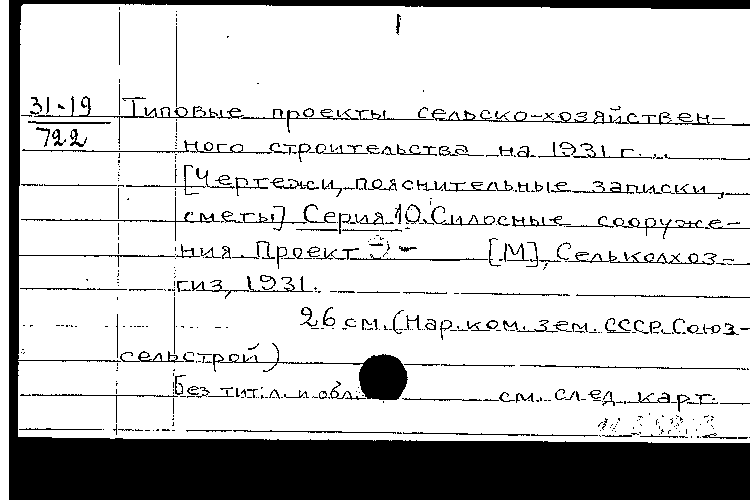 31-19
722
Типовые проекты сельско-хозяйствен-
ного строительства на 1931 г...
[Чертежи, пояснительные записки,
сметы] Серия 10. Силосные сооруже-
ния. Проект - [М], Сельколхоз-
гиз, 1931.
26 см. (Нар. ком. зем. СССР. Союз-
сельстрой)
Без тит. л. и обл. см. след. карт.